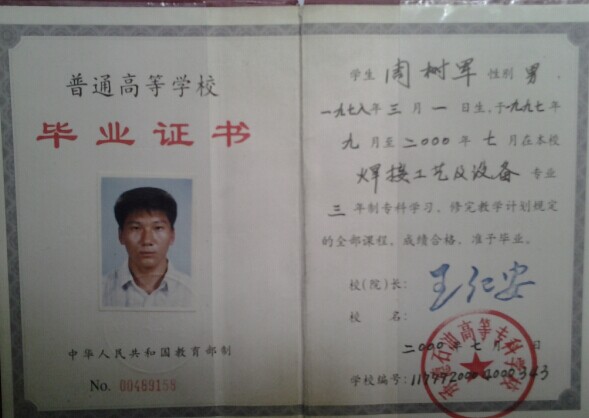 普通高等学校
毕业证书
中华人民共和国教育部制
No. 00489158
学生 周树军 性别 男
一九七八年三月一日生,于一九九七年
九月至二000年七月在本校
焊接工艺及设备 专业
三年制专科学习,修完教学计划规定
的全部课程,成绩合格,准予毕业。
校(院)长: 王仁安
校 名:
二000年七月 日
学校编号:
高等专科学校